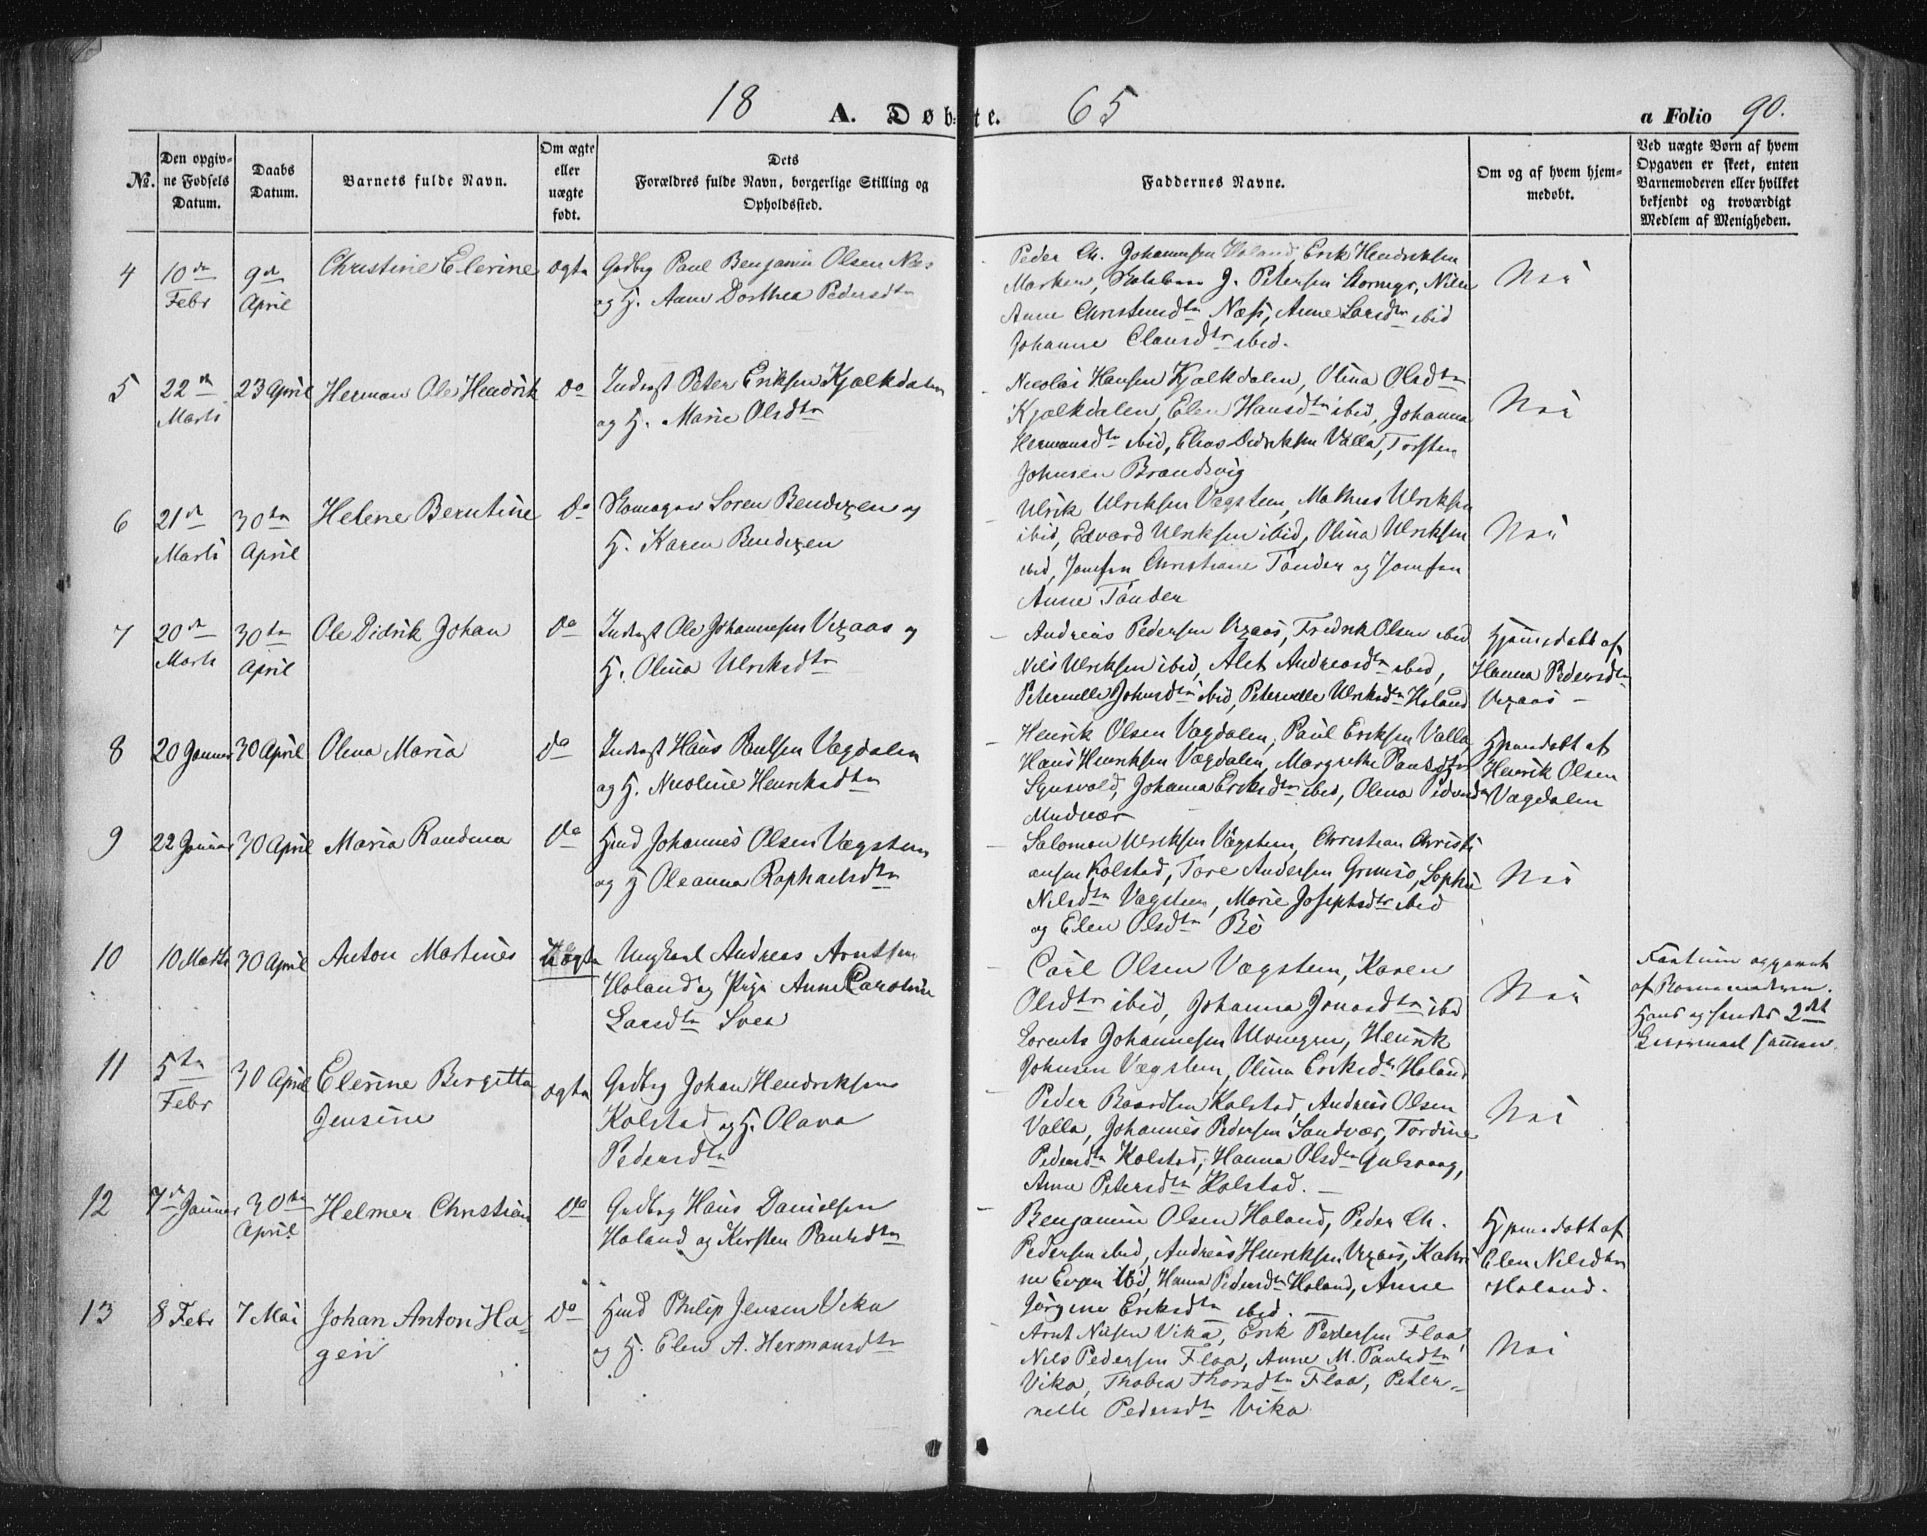 18 A. Døbte. 65 a Folio 90.
No. Den opgivne Fødsels Datum. Daabs Datum. Barnets fulde Navn. Om ægte eller uægte født. Dets Forældres fulde Navn, borgerlige Stilling og Opholdssted. Faddernes Navne. Om og af hvem hjemmedøbt. Ved uægte Børn af hvem Opgaven er skeet, enten Barnemoderen eller hvilket bekjendt og troværdigt Medlem af Menigheden.
4 10de Febr 9de April Christine Elerine ægte Gaardbrg Paul Benjamin Olsen Næs
og H. Anne Dorthea Pedersdtr
Peder Ch. Johannesen Holand, Erik Hendriksen
Marken, J. Petersen
Anne Christensdtr Næss, Anne Larsdtr ibid
Johanne Clausdtr ibid.
Nei
5 22de Marts 23 April Herman Ole Hendrik Do Inderst Peter Eriksen Kjælkdalen
og H. Marie Olsdtr
Nicolai Hansen Kjælkdalen, Olina Olsdtr
Kjælkdalen, Elen Hansdtr ibid, Johanna
Hermansdtr ibid, Elias Didriksen Valla, Torsten
Johnsen Brandsvig
Nei
6 21de Marts 30te April Helene Berntine Do Skomager Søren Bendixen og
H. Karen Bendixen
Ulrik Ulriksen Vægstem, Mathias Ulriksen
ibid, Edvard Ulriksen ibid, Olina Ulriksen
ibid, Jomfru Christiane Tønder og Jomfru
Anne Tønder
Nei
7 20de Marts 30te April Ole Didrik Johan Do Inderst Ole Johannesen Vixaas og
H. Olina Ulriksdtr
Andreas Pedersen Vixaas, Fredrik Olsen ibid
Nils Ulriksen ibid, Alet Andreasdtr ibid,
Peternelle Johnsdtr ibid, Peternelle Ulriksdtr Holand
Hjemmedøbt af
Hanna Pedersdtr
Vixaas
8 20 Januar 30 April Olena Maria Do Inderst Hans Paulsen Vægdalen
og H. Nicoline Henriksdtr
Henrik Olsen Vægdalen, Paul Eriksen Valla,
Hans Henriksen Vægdalen, Margrethe Paulsdtr
Johanna Eriksdtr ibid, Olena
Hjemmedøbt af
Henrik Olsen
Vægdalen
9 22 Januar 30 April Maria Randina Do Hmd Johannes Olsen Vægstem
og H Oleanna Raphaelsdtr
Salomon Ulriksen Vægstem, Christian Christi
ansen Kolstad, Tore Andersen Grimsø, Sophie
Nilsdtr Vægstem, Marie Josephsdtr ibid
og Elen Olsdtr Bø
Nei
10 10 Marts 30 April Anton Martines uægte Ungkarl Andreas Arntsen
Holand og Pige Anne Caroline
Larsdtr Svea
Carl Olsen Vægstem, Karen
Olsdtr ibid, Johanna Jonasdtr ibid
Lorents Johannesen Henrik
Johnsen Vægstem, Olina Eriksdtr Holand
Nei
af Barnemoderen.
Hans og hendes 2det
Leiermaal sammen.
11 5te Febr 30 April Elerine Birgitta
Jensine
ægte Gaardbrg Johan Hendriksen
Kolstad og H. Olava
Pedersdtr
Peder Baardsen Kolstad, Andreas Olsen
Valla, Johannes Pedersen Sandvær, Tordine
Pedersdtr Kolstad, Hanna Olsdtr Gulsvaag,
Anne Petersdtr Kolstad.
Nei
12 7de Januar 30te April Helmer Christian Do Gaardbrg Hans Danielsen
Holand og Kirsten Paulsdtr
Benjamin Olsen Holand, Peder Ch.
Pedersen ibid, Andreas Henriksen Vixaas, Kathri
ne ibid, Hanna Pedersdtr Holand, Anne
Jørgine Eriksdtr ibid.
Hjemmedøbt af
Elen Nilsdtr
Holand.
13 8 Febr 7 Mai Johan Anton Ha-
gen
Do Hmd Philip Jensen Vika
og H. Elen A. Hermansdtr
Arnt Nilsen Vika, Erik Pedersen Floa,
Nils Pedersen Floa, Anne M. Paulsdtr
Vika, Thobea Thorsdtr Floa, Peter-
nelle Pedersdtr Vika
Nei